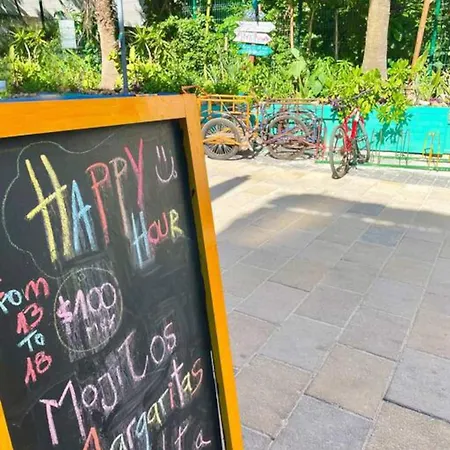 Happy
Hour
From
13
To
18
$100
Mojitos
Margaritas